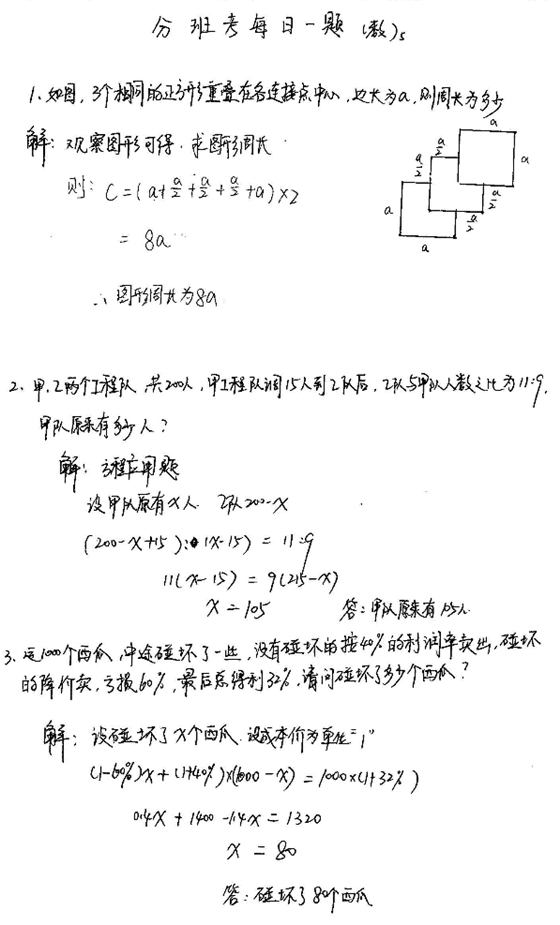 分班考每日一题(数)5
1、如图,3个相同的正方形重叠在各连接点中心,边长为a,则周长为多少
解:观察图形可得,求图形周长
则:C=(a+a/2+a/2+a/2+a)×2
=8a
∴图形周长为8a
a
a/2
a
a/2
a/2
a
a/2
a
2、甲、乙两个工程队,共200人,甲工程队调15人到乙队后,乙队与甲队人数之比为11:9,
甲队原来有多少人?
解:方程应用题
设甲队原有x人 乙队200-x
(200-x+15):(x-15)=11:9
11(x-15)=9(215-x)
x=105
答:甲队原来有105人
3、运1000个西瓜,中途碰坏了一些,没有碰坏的按40%的利润率卖出,碰坏
的降价卖,亏损60%,最后总得利32%,请问碰坏了多少个西瓜?
解:设碰坏了x个西瓜.设成本价为单位"1"
(1-60%)x+(1+40%)×(1000-x)=1000×(1+32%)
0.4x+1400-1.4x=1320
x=80
答:碰坏了80个西瓜